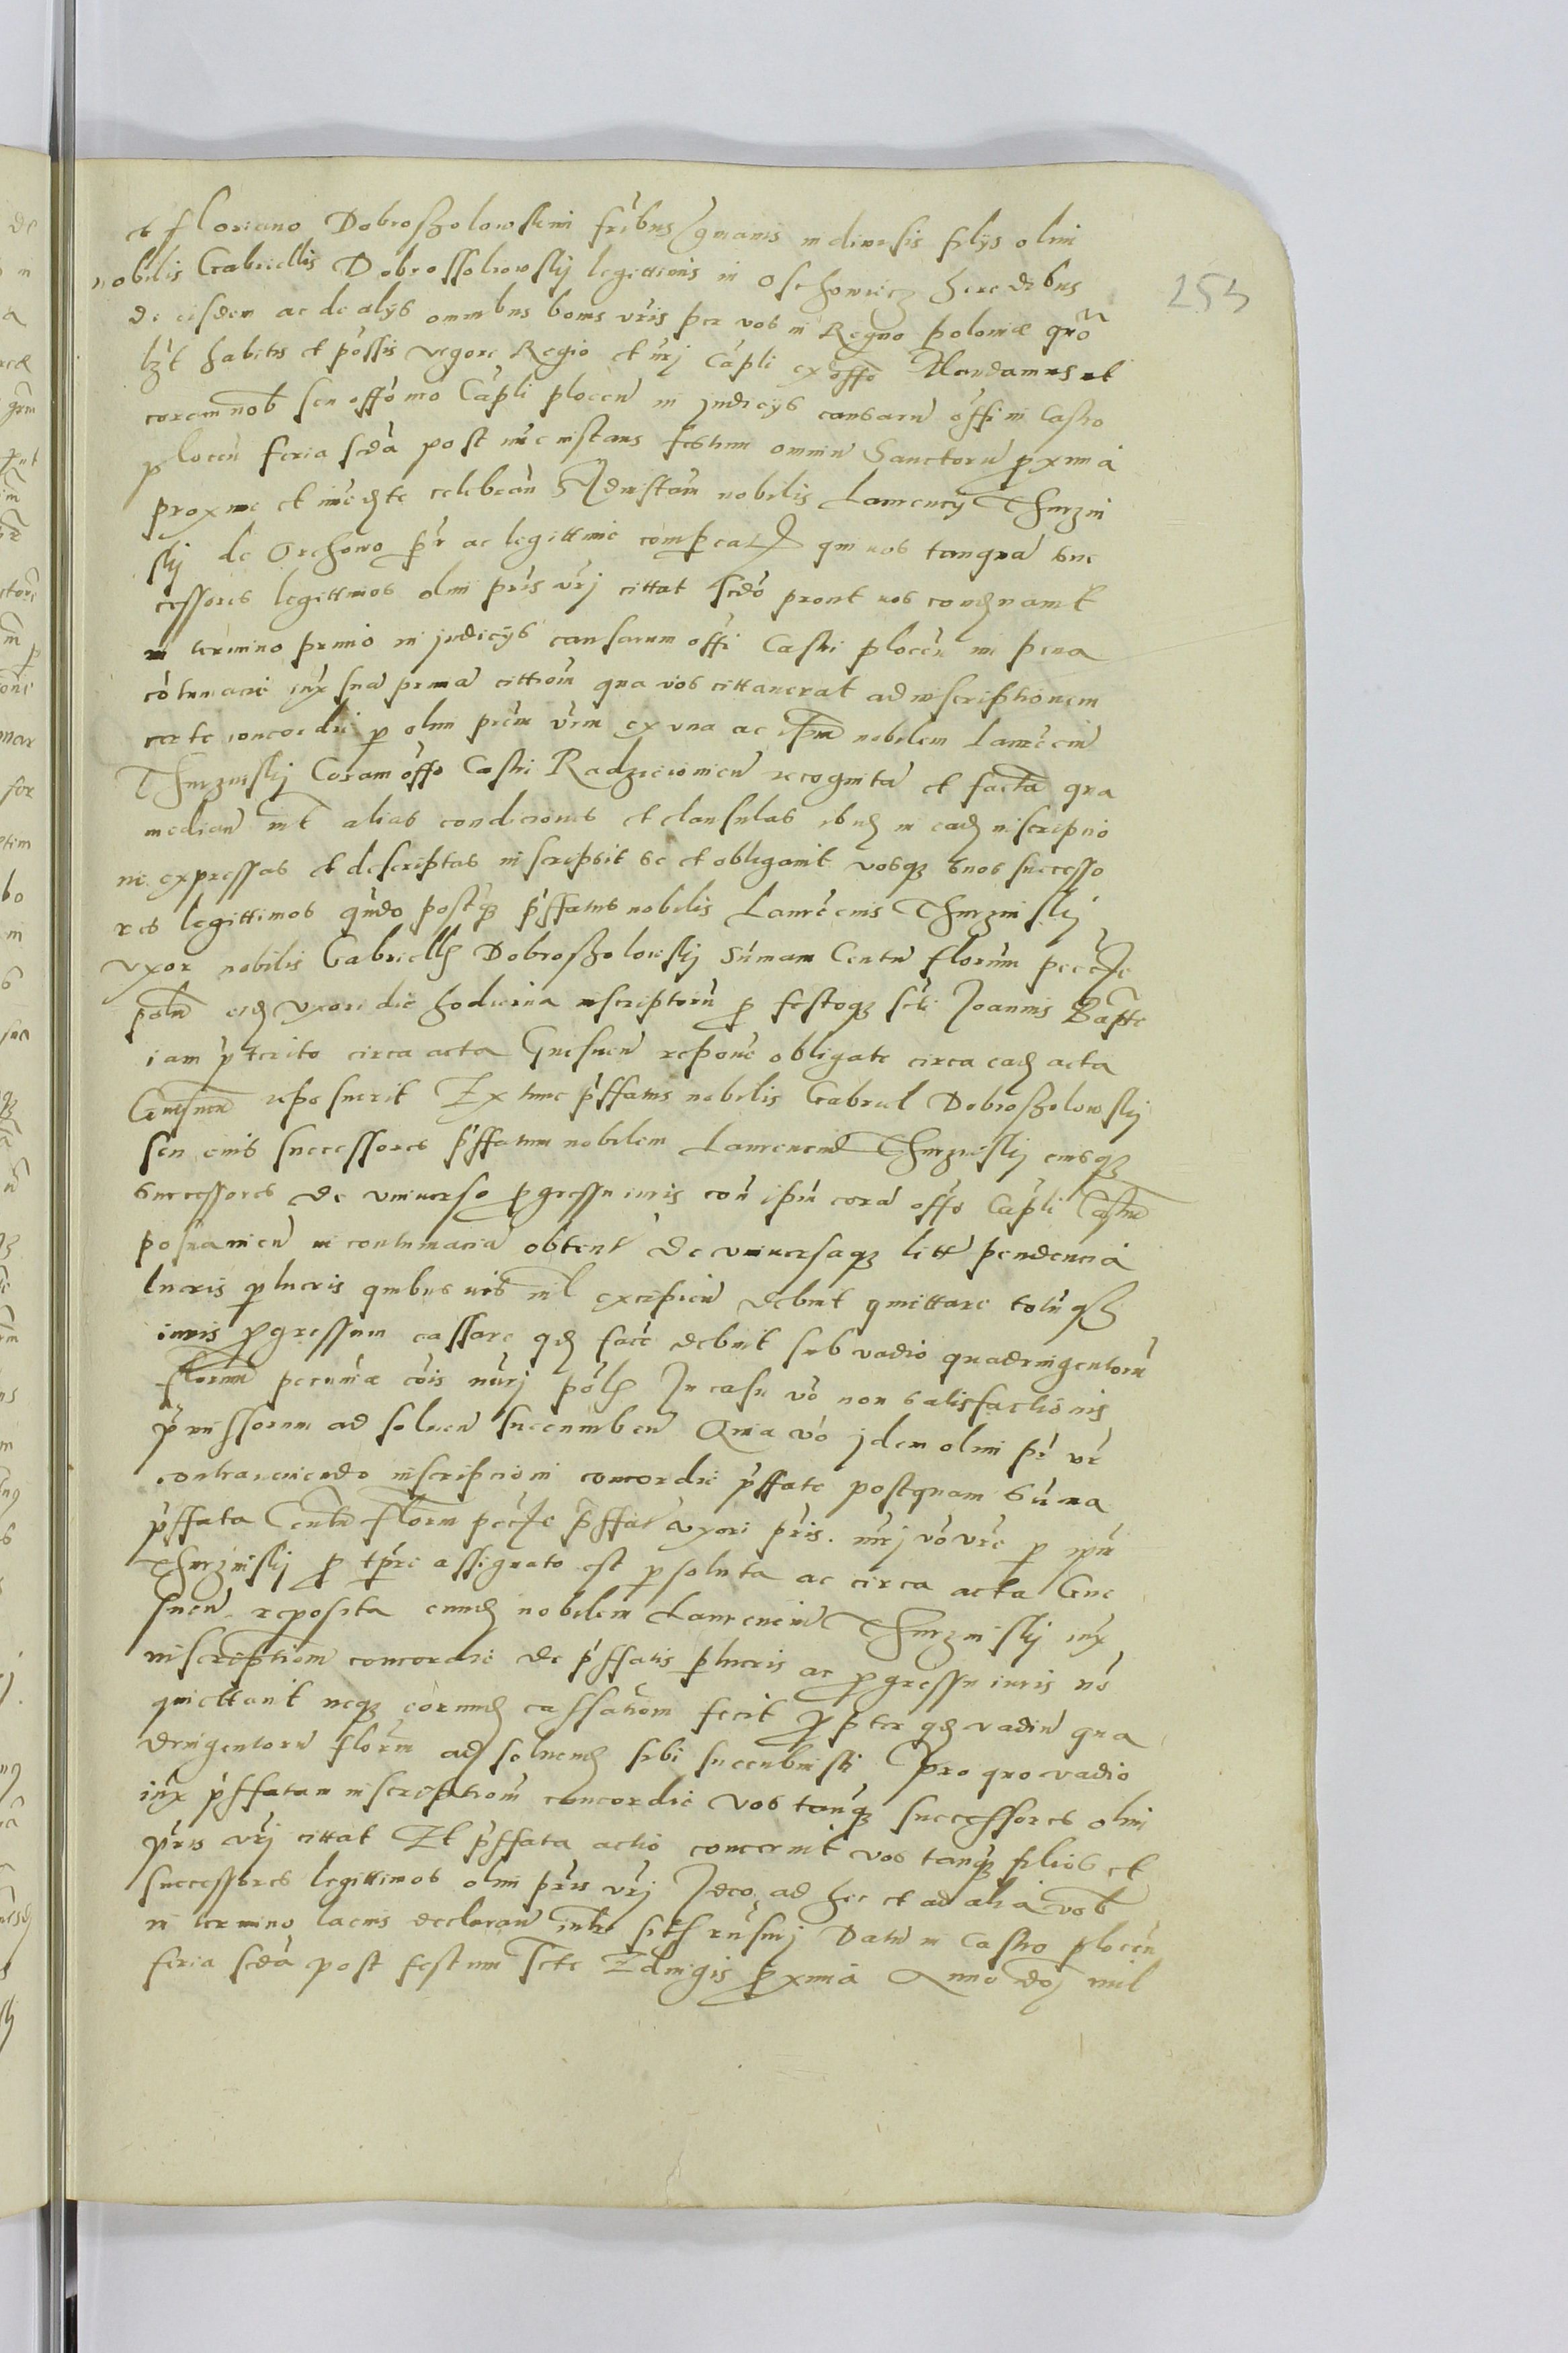 et Floriano Dobroszolowskimi fribus germanis indivisis filijs olim
nobilis Gabriellis Dobrossolowskij legittimis in Oschowiecz heredibus
de eisdem ac de alijs omnibus bonis vris per vos in Regno poloniæ quo
lzt habitis et possis vigore Regio et nrj Capli ex offo Mandamus ut
coram nob seu offo nro Capli plocen in judicijs causarum offi in Castro
plocen feria scda post nunc instans festum omniu Sanctoru pxima
proxime et imedte celebran Ad instam nobilis Laurencij Thurzni
skij de Orchowo pr ac legittime compeatis qui vos tanqua suc
cessores legittimos olim pris vrj cittat scdo prout vos condnavit
in termino primo in judicijs causarum offi Castri plocen in pena
cotumacie iux sua prima cittiom qua vos cittaverat ad inscriptionem
certe concordie p olim prem vrm ex vna ac ipm nobilem Laureciu
Thurznskij Coram offo Castri Radzieiovien recognita et facta qua
median int alias condiciones et clausulas ibid in ead inscriptio
ne expressas et descriptas inscripsit se et obligavit vosq suos successo
res legittimos qudo postq pffatus nobilis Laurecius Thurzniskij
vxor nobilis Gabriellis Dobroszolowskij Sumam Centu florum pecuie
polm eid vxori die hodierna inscriptoru p festoq scti Joannis Bapte
iam pterito circa acta Gnesnen repone obligate circa ead acta
Gnesnen reposuerit Ex tunc pffatus nobilis Gabriel Dobroszolowskij
seu eius successores pffatum nobilem Laurenciu Thurzniskij eiusq
successores de vniuerso pgressu iuris con ipm cora offo Capli Castru
posnanien in contumacia obtent de vniuersaq litt pendencia
lucris plucris quibusuis nil excipien debuit quittare totuq
iuris pgressum cassare qd face debuit sub vadio quadringentoru
florum pecuniæ cois nurj pol In casu vo non satisfactionis
pmissorum ad soluen succumben Quia vo jdem olim pr vr
contraueniendo inscripcioni concordie pffate postquam Suma
pffata Centu florm pecuie pffat vxori pris nrj vo vre p ipm
Thurzniskij p tpre assignato est p soluta ac circa acta Gne
snen reposita eund nobilem Laurenciu Thurzniskij iux
inscriptiom concordie de pffatis plucris ac pgressu iuris no
quittauit neq eorund cassatiom fecit ppter qd vadiu qua
dringentoru florm ad soluend sibi succubuisti Pro quo vadio
iux pffatam inscriptiom concordie vos tanq successores olim
pris vrj cittat Et pffata actio concernit vos tanq filios et
successores legittimos olim pris vrj Ideo ad hec et ad alia vob
in termino lacius declaran Datu in Castro plocen
feria scda post festum scte Eduigis pxima Anno doj mil
253